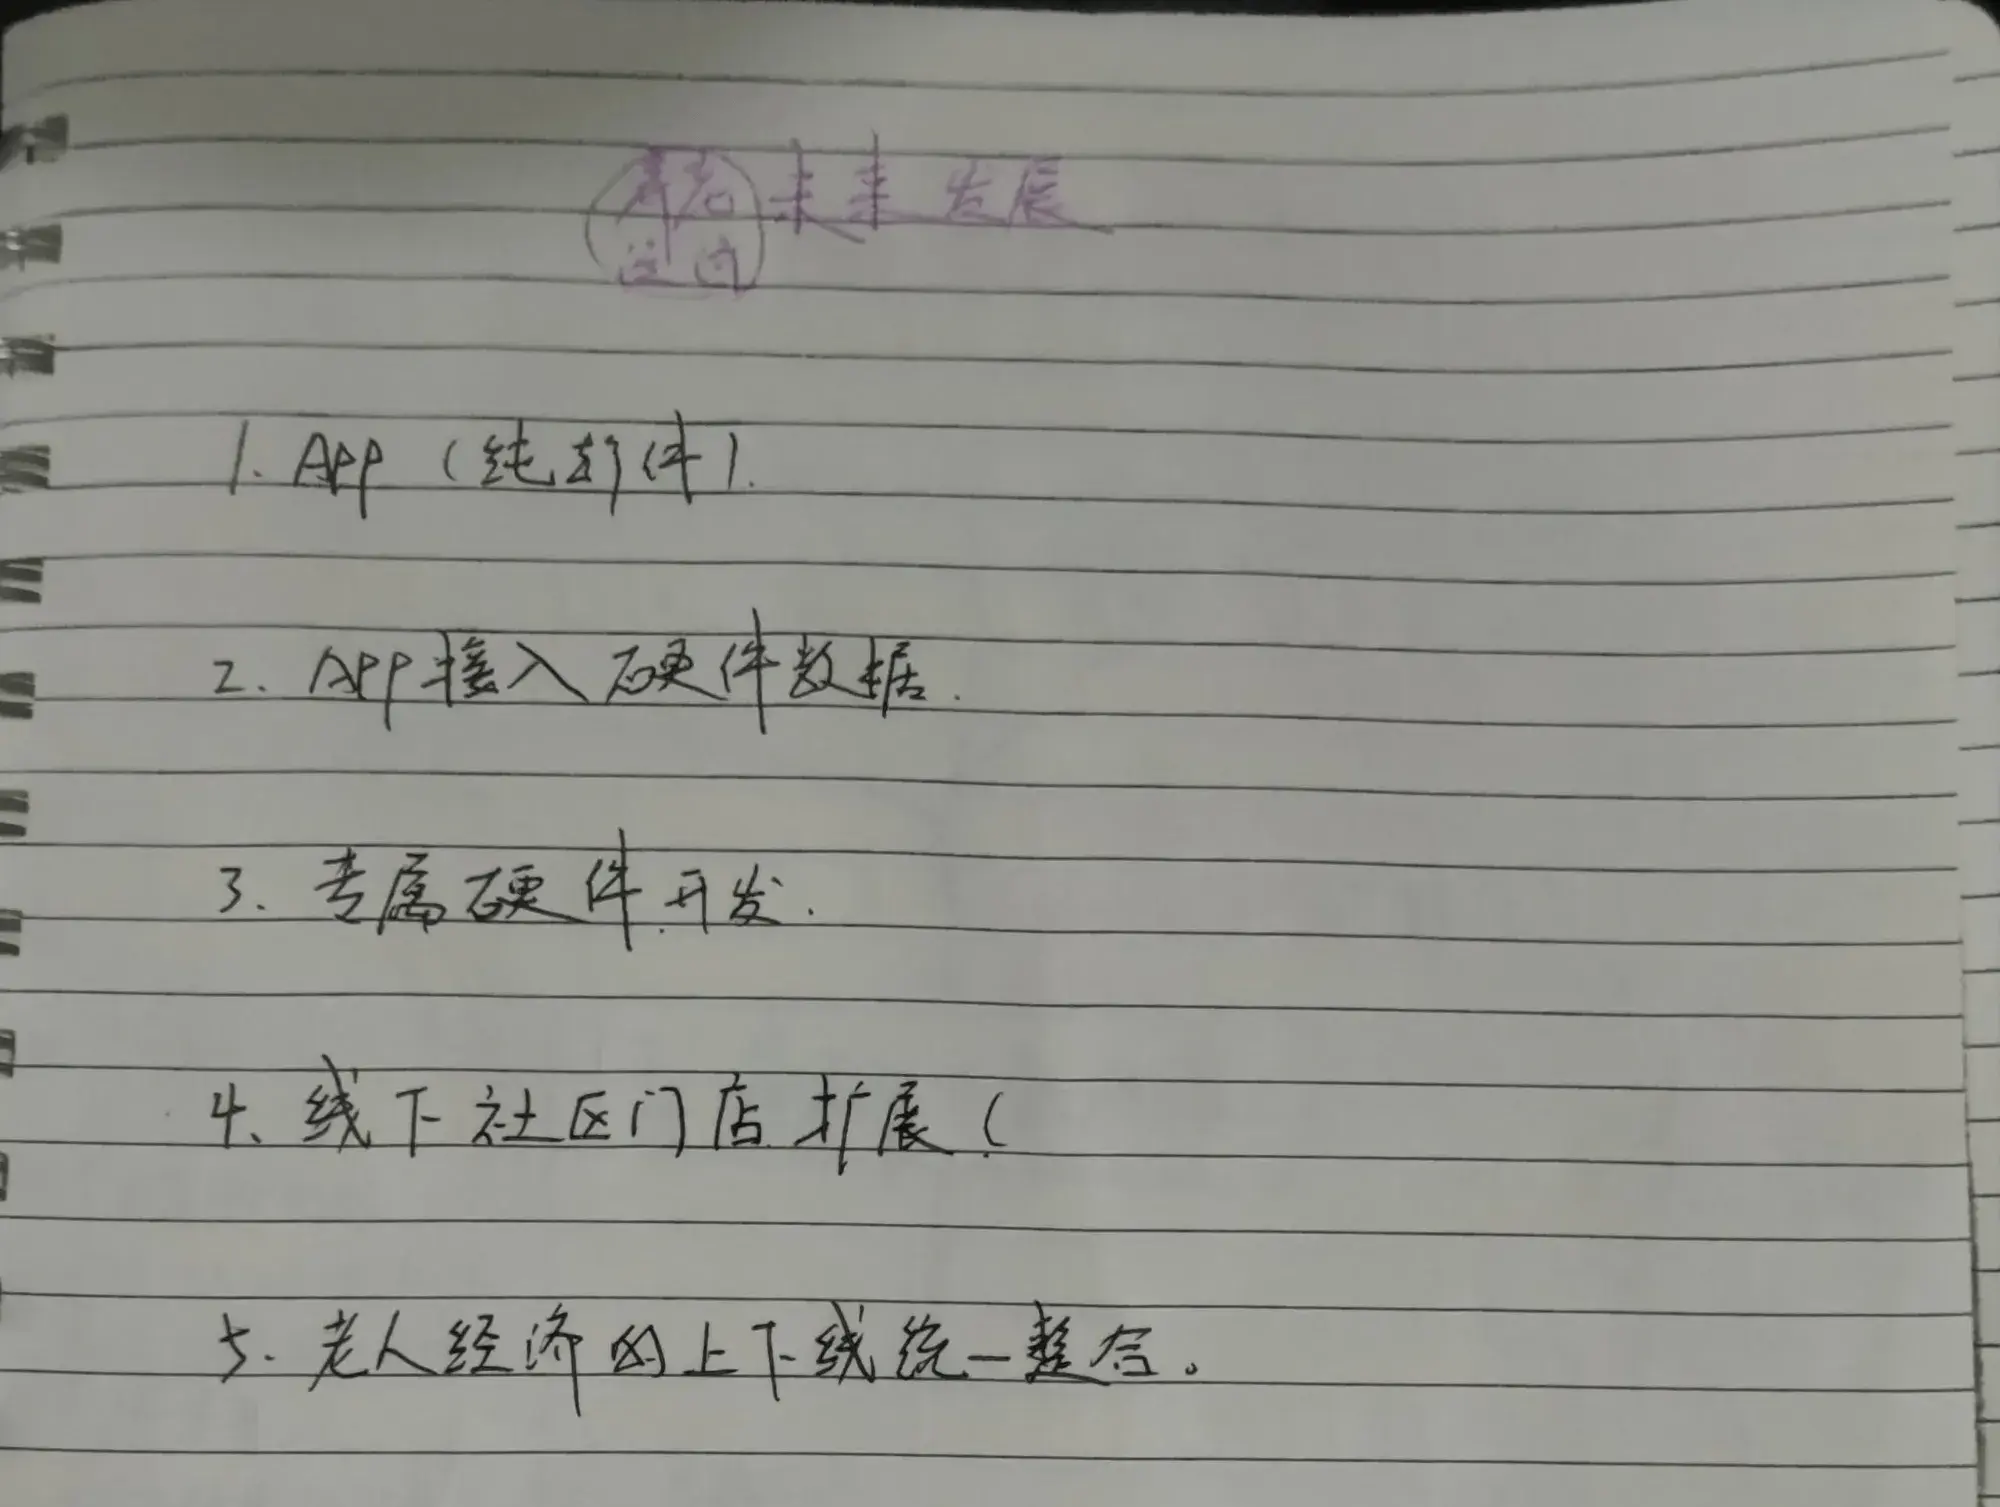 养老未来发展
1. App (纯软件).
2. App接入硬件数据.
3. 专属硬件开发.
4、线下社区门店扩展(
5. 老人经济的上下线统一整合。